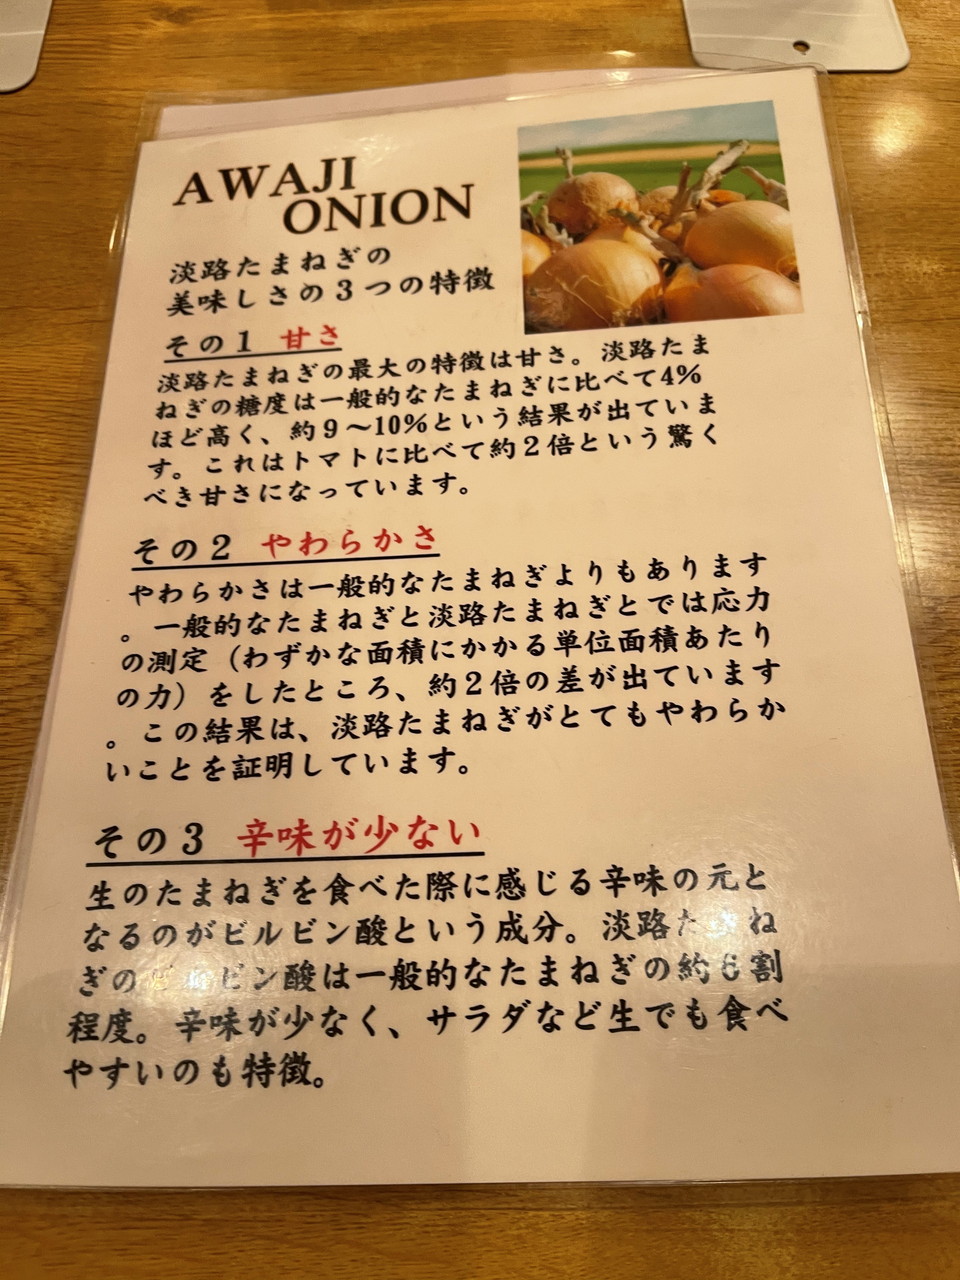 AWAJI
ONION
淡路たまねぎの
美味しさの3つの特徴
その1 甘さ
淡路たまねぎの最大の特徴は甘さ。淡路たま
ねぎの糖度は一般的なたまねぎに比べて4%
ほど高く、約9〜10%という結果が出ていま
す。これはトマトに比べて約2倍という驚く
べき甘さになっています。
その2 やわらかさ
やわらかさは一般的なたまねぎよりもあります
。一般的なたまねぎと淡路たまねぎとでは応力
の測定（わずかな面積にかかる単位面積あたり
の力）をしたところ、約2倍の差が出ています
。この結果は、淡路たまねぎがとてもやわらか
いことを証明しています。
その3 辛味が少ない
生のたまねぎを食べた際に感じる辛味の元と
なるのがビルビン酸という成分。淡路たまね
ぎのビルビン酸は一般的なたまねぎの約6割
程度。辛味が少なく、サラダなど生でも食べ
やすいのも特徴。